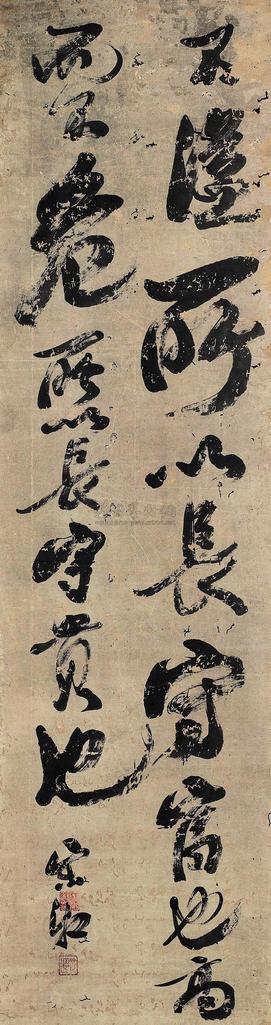 不溢所以長守富也高
而不危所以長守貴也